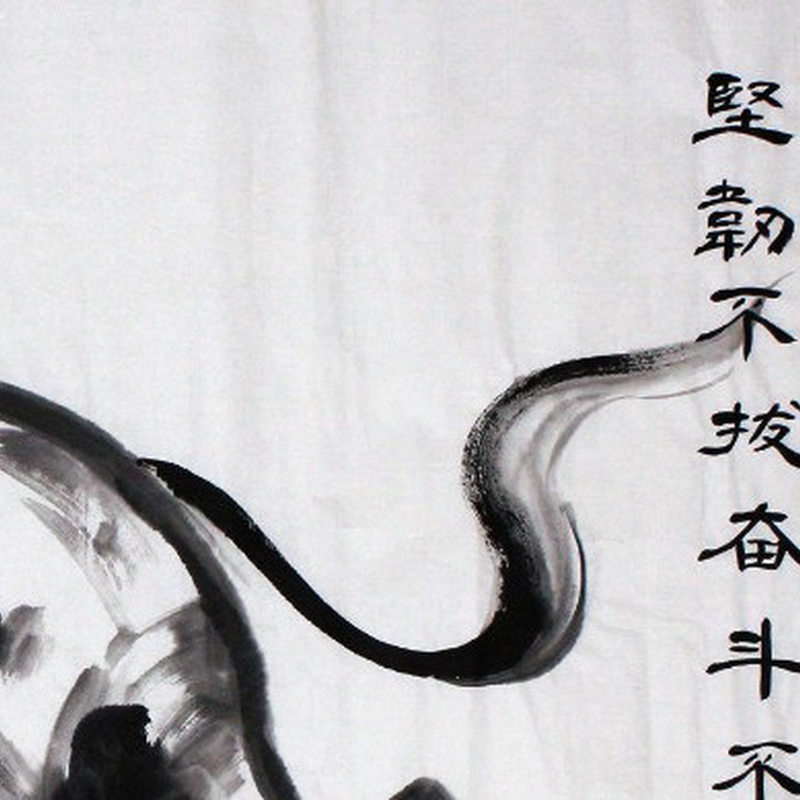 堅韌不拔奋斗不